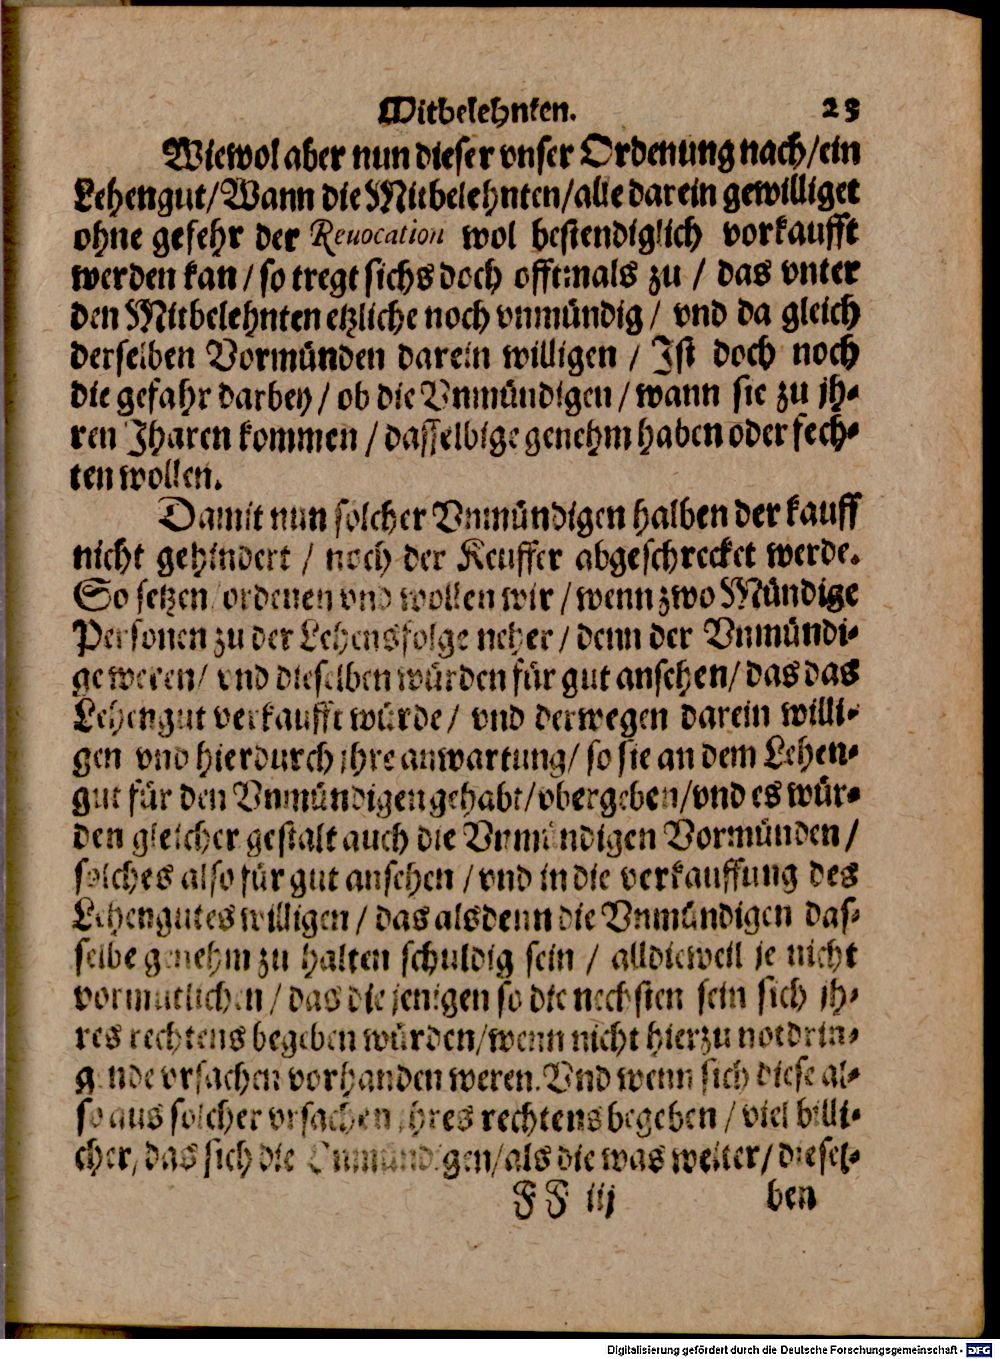 Mitbelehnten. 23
Wiewol aber nun dieser vnser Ordenung nach/ein
Lehengut/Wann die Mitbelehnten/alle darein gewilliget
ohne gefehr der Reuocation wol bestendiglich vorkaufft
werden kan/so tregt sichs doch offtmals zu/das vnter
den Mitbelehnten etzliche noch vnmündig/vnd da gleich
derselben Vormünden darein willigen/Ist doch noch
die gefahr darbey/ob die Vnmündigen/wann sie zu jh-
ren Jharen kommen/dasselbige genehm haben oder fech-
ten wollen.
Damit nun solcher Vnmündigen halben der kauff
nicht gehindert/noch der Keuffer abgeschrecket werde.
So setzen/ordenen vnd wollen wir/wenn zwo Mündige
Personen zu der Lehensfolge neher/denn der Vnmündi-
ge weren/vnd dieselben würden für gut ansehen/das das
Lehengut verkaufft würde/vnd derwegen darein willi-
gen vnd hierdurch jhre anwartung/so sie an dem Lehen-
gut für den Vnmündigen gehabt/vbergeben/vnd es wür-
den gleicher gestalt auch die Vnmündigen Vormünden/
solches also für gut ansehen/vnd in die verkauffung des
Lehengutes willigen/das alsdenn die Vnmündigen das-
selbe genehm zu halten schuldig sein/alldieweil je nicht
vormutlichen/das die jenigen so die nechsten sein sich jh-
res rechtens begeben würden/wenn nicht hierzu notdrin-
gende vrsachen vorhanden weren. Vnd wenn sich diese al-
so aus solcher vrsachen jhres rechtens begeben/viel billi-
cher/das sich die Vnmündigen/als die was weiter/diesel-
FF iij ben
Digitalisierung gefördert durch die Deutsche Forschungsgemeinschaft - DFG